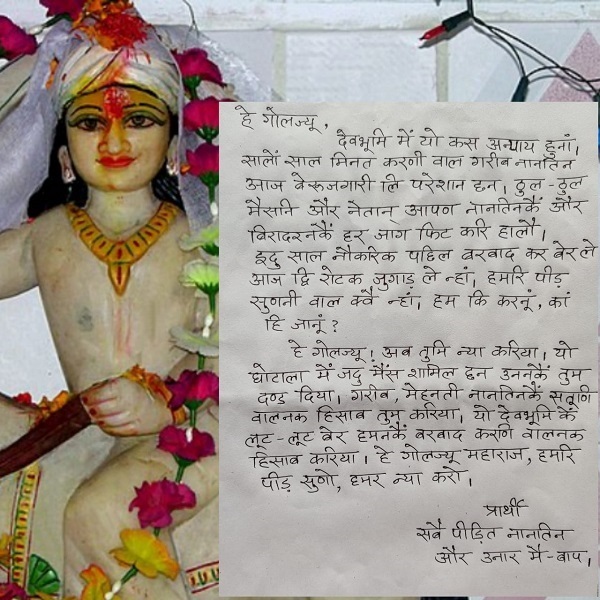 हे गोलज्यू,
देवभूमि में यो कस अन्याय हुनां।
सालों साल मिनत करणी वाल गरीब नानतिन
आज बेरूजगारी लि परेशान छन। ठुल-ठुल
मैसनि और नेतान आपण नानतिनकैं और
बिरादरनकैं हर जाग फिट करि हालौ।
इदु साल नौकरिक पछिल बरबाद कर बेर ले
आज द्वि रोटक जुगाड़ ले न्हां। हमरि पीड़
सुणनी वाल क्वै न्हां। हम कि करनूं, कां
हि जानूं?
हे गोलज्यू! अब तुमि न्या करिया। यो
घोटाला में जदु मैंस शामिल छन उननकैं तुम
दण्ड दिया। गरीब, मेहनती नानतिनकैं सतूणि
वालनक हिसाब तुम करिया। यो देवभूमि कैं
लूट-लूट बेर हमनकैं बरबाद करणि वालनक
हिसाब करिया। हे गोलज्यू महाराज, हमरि
पीड़ सुणो, हमर न्या करो।
प्रार्थी
सबै पीड़ित नानतिन
और उनार मै-बाप।